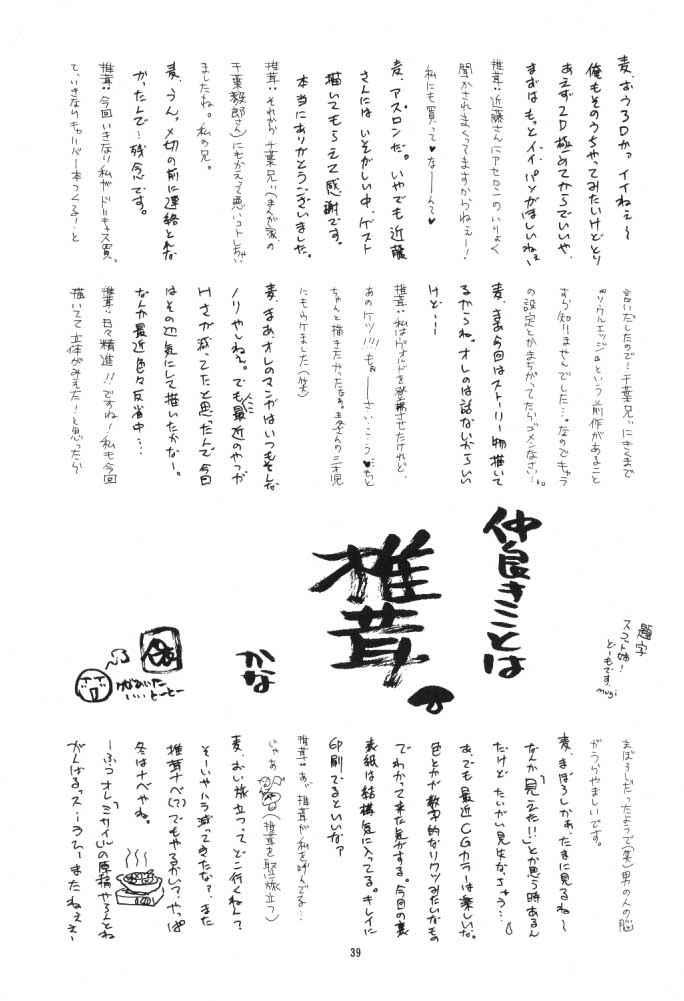 麦、おう3Dかっ イイねぇ〜
俺もそのうちやってみたいけどとり
あえず2D極めてからでいいや、
まずはもっとイイパソがほしいねぇ、
椎茸：近藤さんにアセロンのいりょく
聞かされまくってますからねぇー！
私にも買って♥な——んて♥
麦、アスロンだ。いやでも近藤
さんには いそがしい中、ゲスト
描いてもらえて感謝です。
本当にありがとうございました。
椎茸：それから千葉兄ぃ（まんが家の
千葉毅郎さん）にもかえて悪いコトしちゃい
ましたね。私の兄。
麦、うん、〆切の前に連絡とれな
かったんで…残念です。
椎茸：今回いきなり私がドリキャス買
て、いきなりキャリバー本つくる！と
言いだしたので…千葉兄ぃにきくまで
『ソウルエッジ』という前作があること
すら知りませんでした…。なのでキャラ
の設定とかまちがってたらゴメンなさい。
麦、まあ今回はストーリー物描いて
るからね。オレのは話ないからいい
けど…
椎茸：私はヴォルドを登場させたけれど、
あのケツ!!! もぉ——さいこう♥もっと
ちゃんと描きたかったなぁ。
にもウケました（笑）
麦、まあ、オレのマンガはいつもそんな
ノリやしねぇ。でも最近のやつが
Hさが減ってたと思ったんで今回
はその辺気にして描いたかなー。
なんか最近色々反省中…
椎茸：日々精進!!ですね！私も今回
描いてて立体がみえた！と思ったら
題字
スコット姉！
どーもです。
mugi
仲良きことは
椎茸。
かな
まぼろしだったようで（笑）男の人の脳
がうらやましいです。
麦、まぼろしかぁ、たまに見るね〜
なんか「見えた!!」とか思う時あるん
だけど たいがい見失なっちゃう…
あ、でも最近CGカラーは楽しいな。
色とかが数字的なリクツみたいなもの
でわかって来た気がする。今回の裏
表紙は結構気に入ってる。キレイに
印刷でるといいな？
椎茸：あ、椎茸が私を呼んでる…
じゃあ（椎茸を堅に旅立つ）
麦、おい旅立つってどこ行くねん？
そーいやハラ減ってきたな？、また
椎茸ナベ（？）でもやるかい？、やっぱ
冬はナベやね。
ーふっ オレ「ミサイル」の原稿やらんとね
がんばるっス…うひー またねぇぇ〜
39